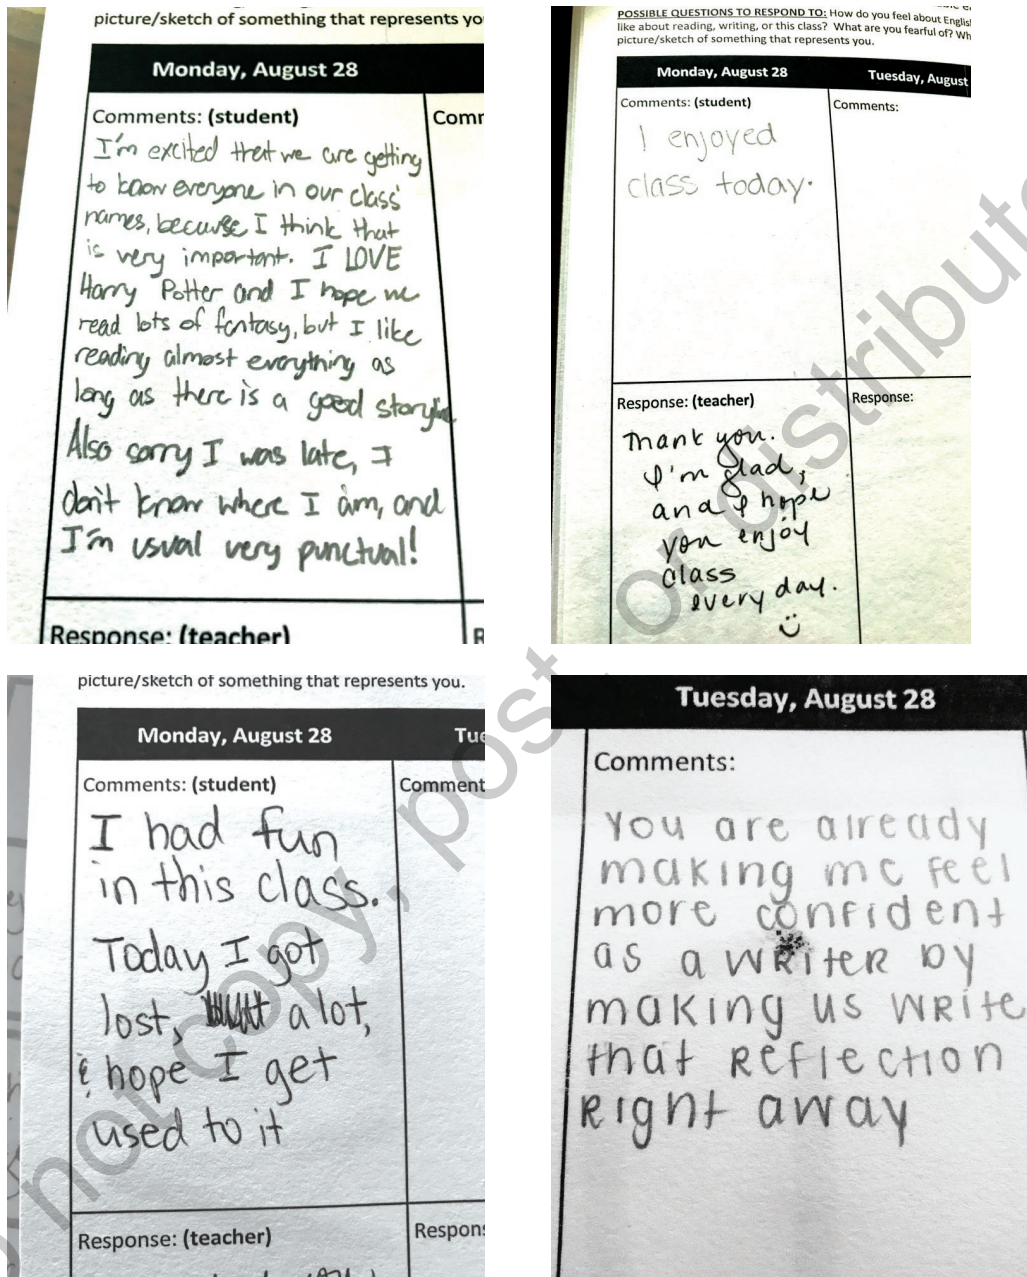 picture/sketch of something that represents yo
Monday, August 28
Comments: (student)
Comm
I'm excited that we are getting
to know everyone in our class'
names, because I think that
is very important. I LOVE
Harry Potter and I hope we
read lots of fantasy, but I like
reading almost everything as
long as there is a good storyline
Also sorry I was late, I
don't know where I am, and
I'm usual very punctual!
Response: (teacher)
R
POSSIBLE QUESTIONS TO RESPOND TO: How do you feel about Englis
like about reading, writing, or this class? What are you fearful of? Wh
picture/sketch of something that represents you.
Monday, August 28
Tuesday, August
Comments: (student)
Comments:
I enjoyed
class today.
Response: (teacher)
Response:
Thank you.
I'm glad,
and I hope
you enjoy
class
every day.
picture/sketch of something that represents you.
Monday, August 28
Tue
Comments: (student)
Comment
I had fun
in this class.
Today I got
lost, a lot,
& hope I get
used to it
Response: (teacher)
Respons
Tuesday, August 28
Comments:
You are already
making me feel
more confident
as a writer by
making us write
that reflection
right away
not copy, post, or distribute